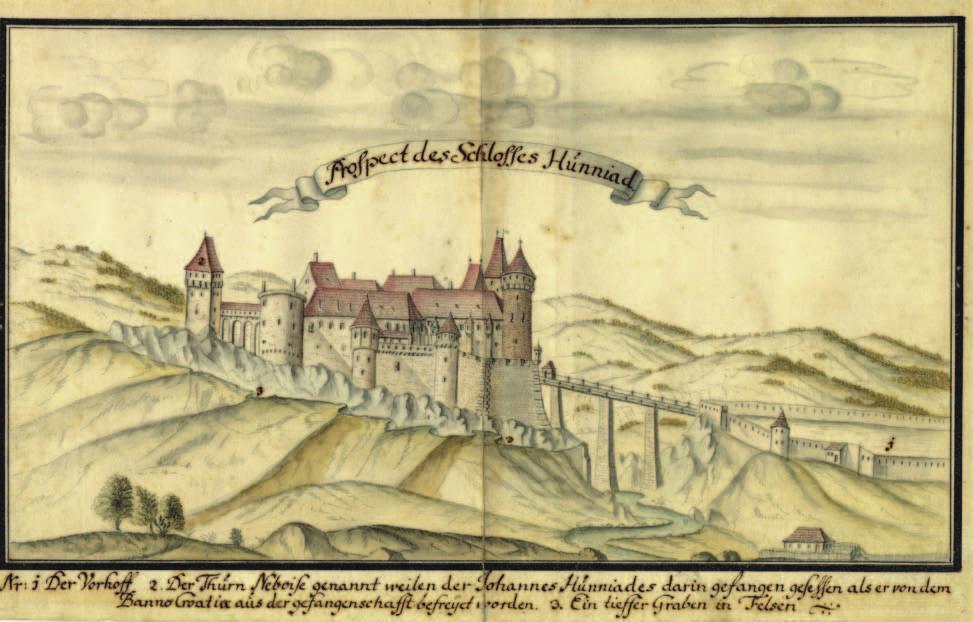 Prospect des Schlosses Hünniad
2
3
3
1
Nr: 1 Der Vorhoff 2. Der Thürn Neboise genannt weilen der Johannes Hünniades darin gefangen gesessen als er von dem
Banno Croatiæ aus der gefangenschafft befreyet worden. 3. Ein tieffer Graben in Felsen